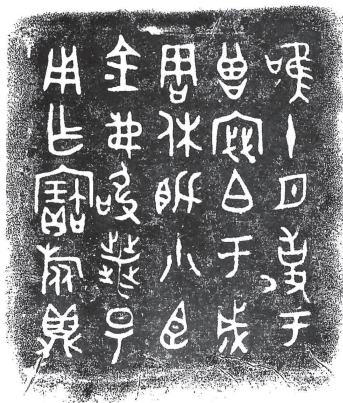 唯十月事于
曾宓白于成
周休毗小臣
金弗敢喪昜
用乍寶旅鼎